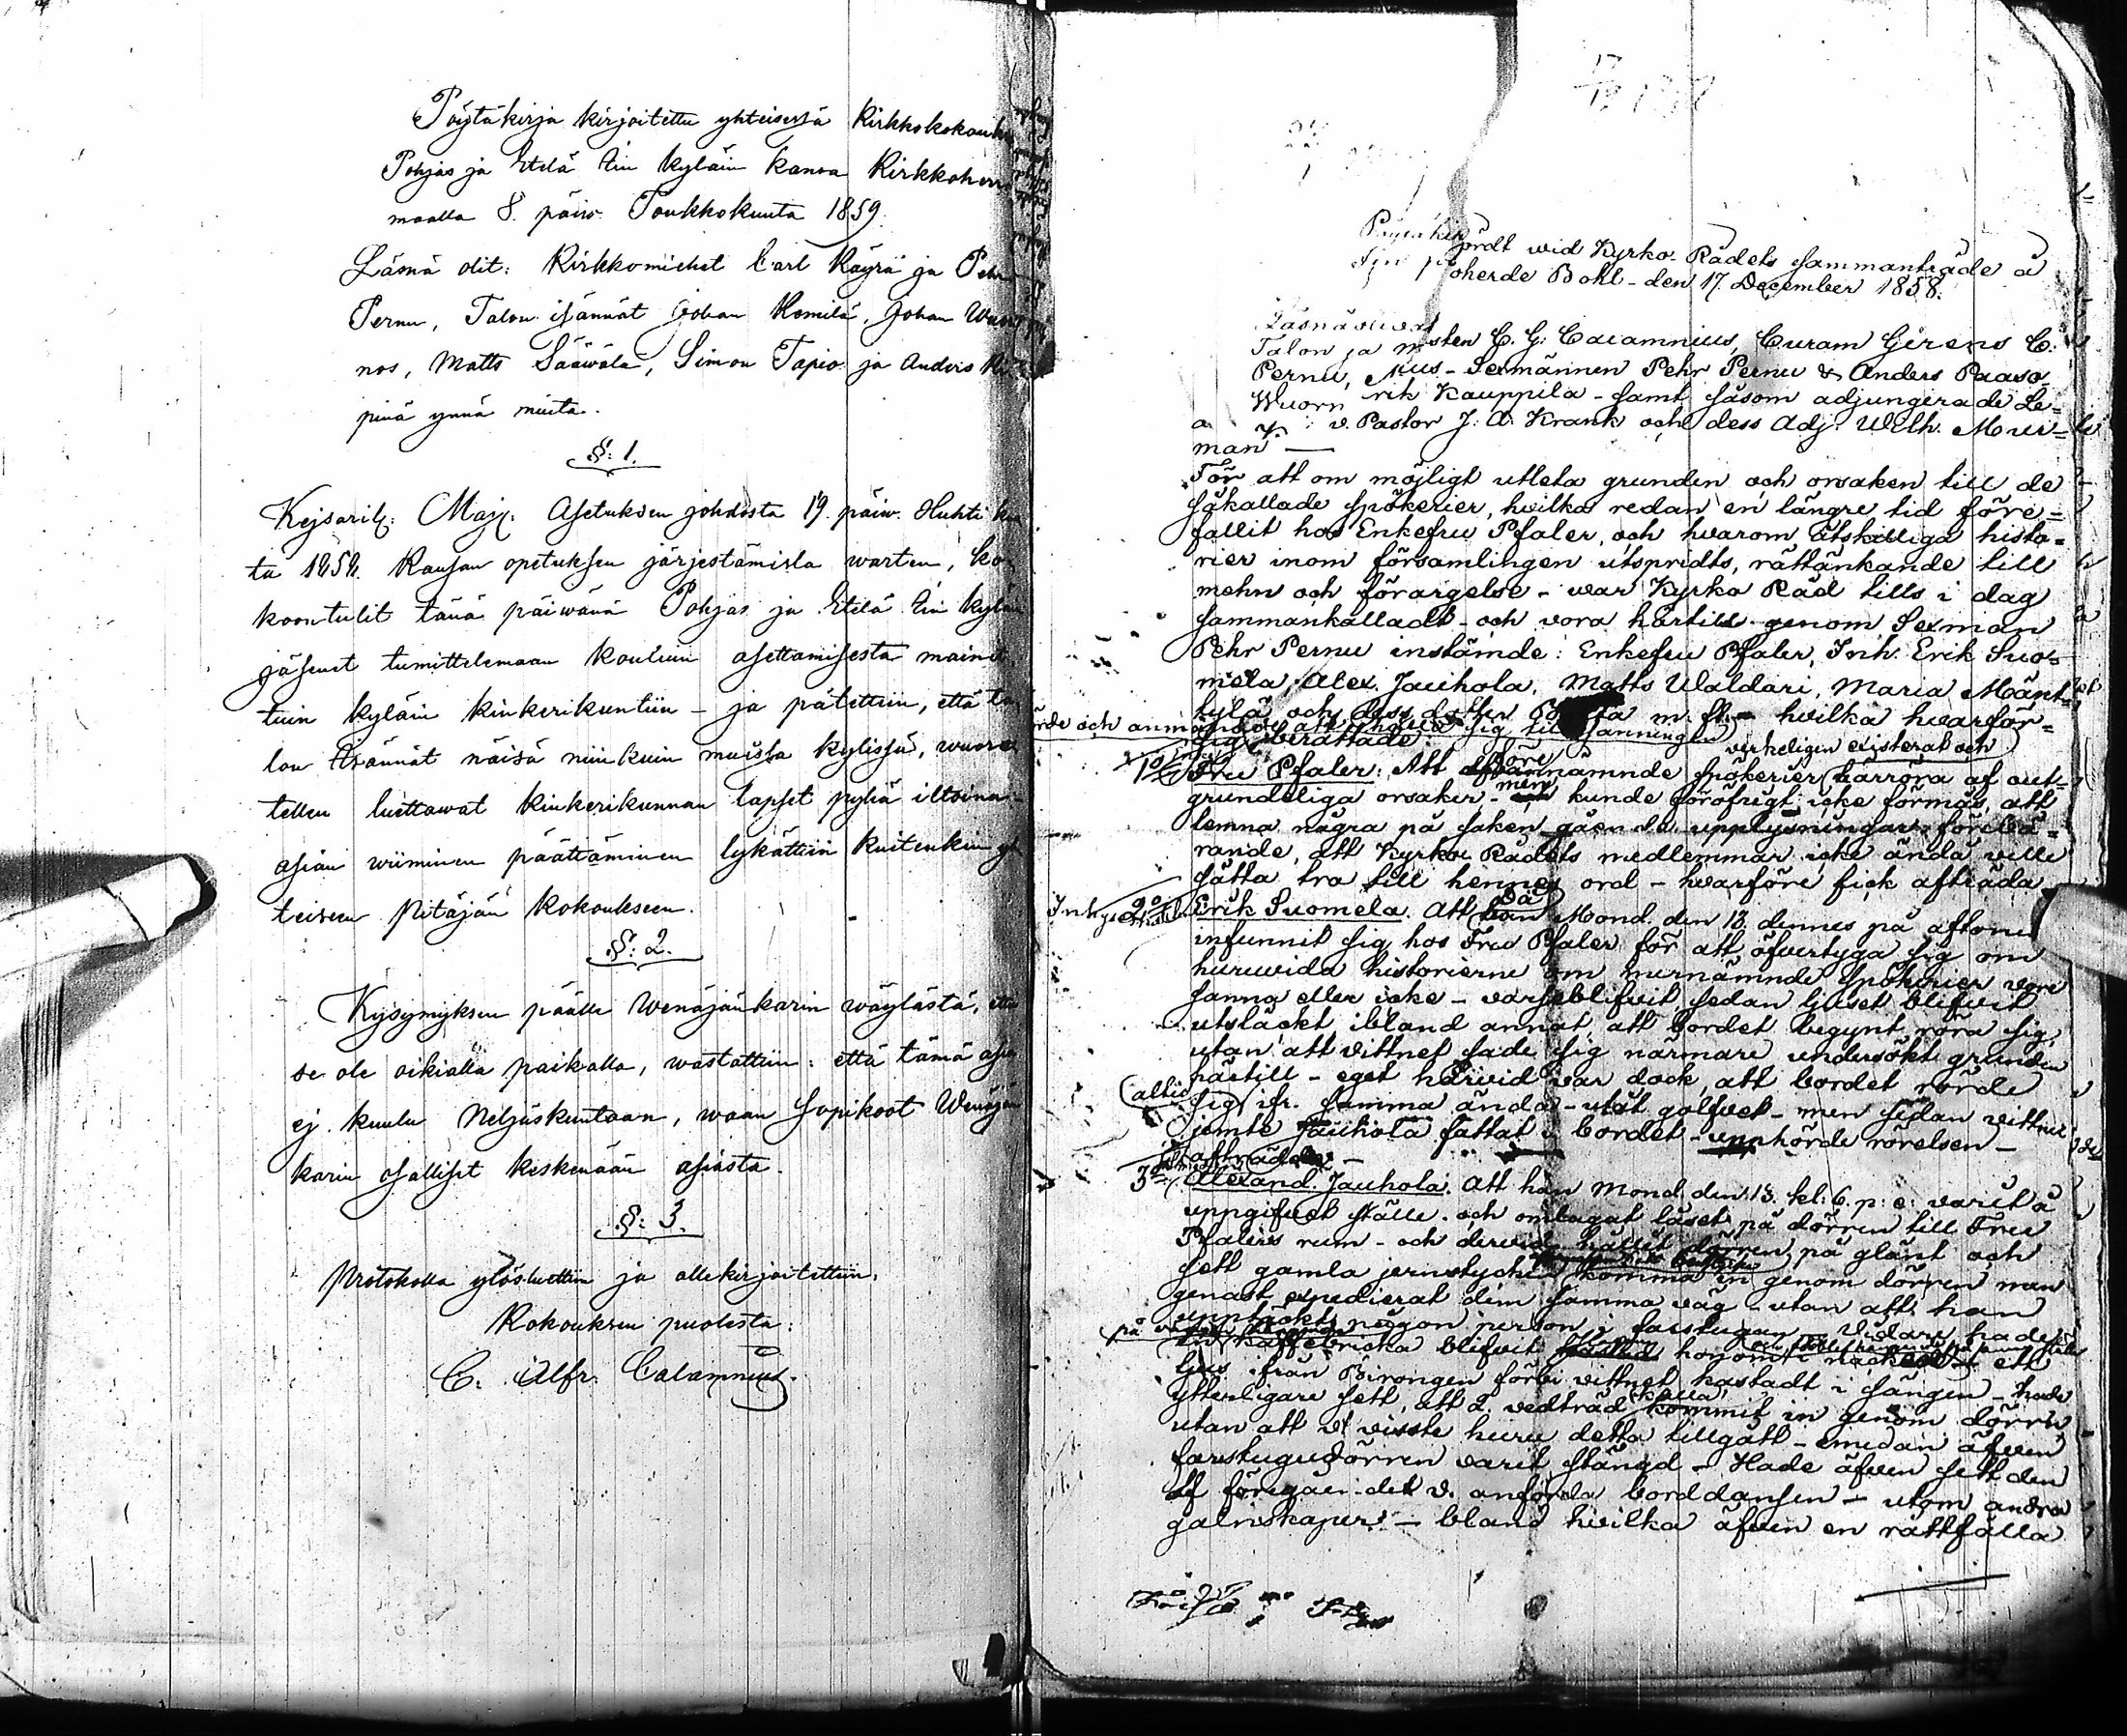 Pöytäkirja kirjoitettu yhteisessä Kirkkokokouk
Pohjas ja Etelä Iin kyläin kansa Kirkkoherr
maalla 8. päiw. Toukkokuuta 1859.
Läsnä olit: Kirkkomiehet Carl Käyrä ja Pehr
Pernu, Talon isännät Johan Romila, Johan
nos, Matts Sääwälä, Simon Tapio ja Anders
pinä ynnä muita.
§: 1.
Kejsaril: Maj: Asetuksen johdosta 19. päiw. Huhti ku
ta 1858. Kansan opetuksen järjestämistä warten, ko
koontulit tänä päiwänä Pohjas ja Etelä Iin kyläin
jäsenet tumittelemaan koulun asettamisesta mainit
tuin kyläin kinkerikuntiin – ja pätettiin, että ta
lon Isännät näisä niinkuin muista kylissä, wuoro
tellen luettawat kinkerikunnan lapset pyhä iltoina –
asian wiiminen päättäminen lykättiin kuitenkin yh
teiseen Pitäjän kokoukseen.
§: 2.
Kysymyksen päälle Wenäjänkarin wäylästä, että
se ole oikialla paikalla, wastattiin: että tämä asia
ej kuulu Neljäskuntaan, waan sopikoot Wenäjän
karin osalliset keskenään asiasta.
§: 3.
Protokolla ylösluettiin ja allekirjoitettiin.
Kokouksen puolesta:
C. Alfr. Calamnius.
Pöytäkir
fördt wid Kyrko Rådets sammanträde å
oherde Bohl – den 17. December 1858.
Läsnä oliwat
Talon ja sten C. G. Calamnius, Curam Gerens C.
Pernu, nius – Sexmännen Pehr Pernu & Anders Paaso
Wuorn rik Kauppila – samt såsom adjungerade Le=
a v. Pastor J. A. Krank och dess Adj. Wilh. Mur=
man –
För att om möjligt utleta grunden och orsaken till de
såkallade spökerier, hvilka redan en längre tid före=
fallit hos Enkefru Pfaler, och hvarom åtskilliga histo=
rier inom församlingen utspridts, rättänkande till
mehn och förargelse – war Kyrko Råd tills i dag
sammankalladt – och vora härtill genom Sexman
Pehr Pernu instämde: Enkefru Pfaler, Inh. Erik Suo=
mela, Alex. Jauhola, Matts Waldari, Maria Mänt=
tylä och dess dotter m. fl. – hvilka hvarför=
rde och anmanades att hålla sig till sanningen
sig berättade
verkeligen existerat och
1o Fru Pfaler: Att förenämnde spökerier härröra af out=
grundeliga orsaker – men kunde föröfrigt icke förmås, att
lemna några på saken gående upplysningar, förebä=
rande, att Kyrko Rådets medlemmar icke ändå ville
sätta tro till hennes ord – hvarföre fick afträda.
Inhyses 2o Erik Suomela. Att då han Mond. den 13 dennes på aftonen
infunnit sig hos Fru Pfaler för att öfvertyga sig om
huruvida historierne om mernämnde spökerier vore
sanna eller icke – varseblifvit sedan ljuset blifvit
utsläckt ibland annat, att bordet begynt röra sig,
utan att vittnet sade sig närmare undersökt grunden
härtill – eget härvid var dock, att bordet rörde
(alltid) sig fr. samma ända – utåt golfvet – men sedan vittnet
jemte Jauhola fattat i bordet – upphörde rörelsen –
afträdde –
3o Alexand. Jauhola. Att han Mond. den 13. kl: 6 p: e: varit å
uppgifvet ställe och omtagat låset på dörren till Fru
Pfalers rum – och dervid hållit dörren på glänt och
sett gamla jernstycken komma in genom dörren men
genast expedierat dem samma väg – utan att han
upptäckt någon person i farstugan – Vidare hade
kaffebricka blifvit honom i nacken – ett
ljus från Birongen förbi vittnet kastadt i sängen – hade
ytterligare sett, att 2. vedträd kommit in genom dörren
utan att v. visste huru detta tillgått – emedan äfven
farstugudörren varit stängd – Hade äfven sett den
af föregåen-det v. anförda borddansen – utom andra
galnskaper – bland hvilka äfven en rättfälla